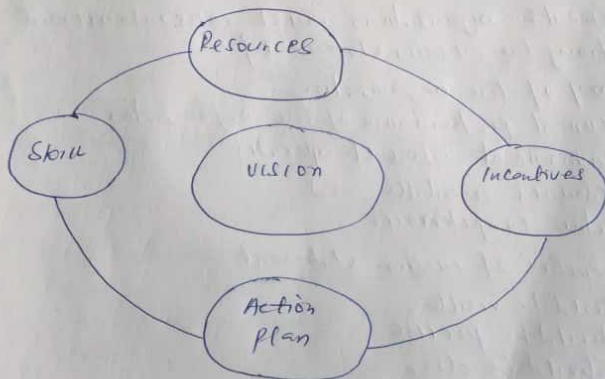 Resources
Skill
Vision
Incentives
Action
Plan